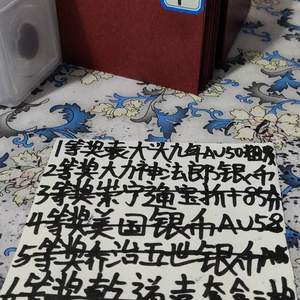 1等奖袁大头九年AU50粗发
2等奖大力神法郎银币
3等奖崇宁通宝折十85分
4等奖美国银币AU58
5等奖乔治五世银币